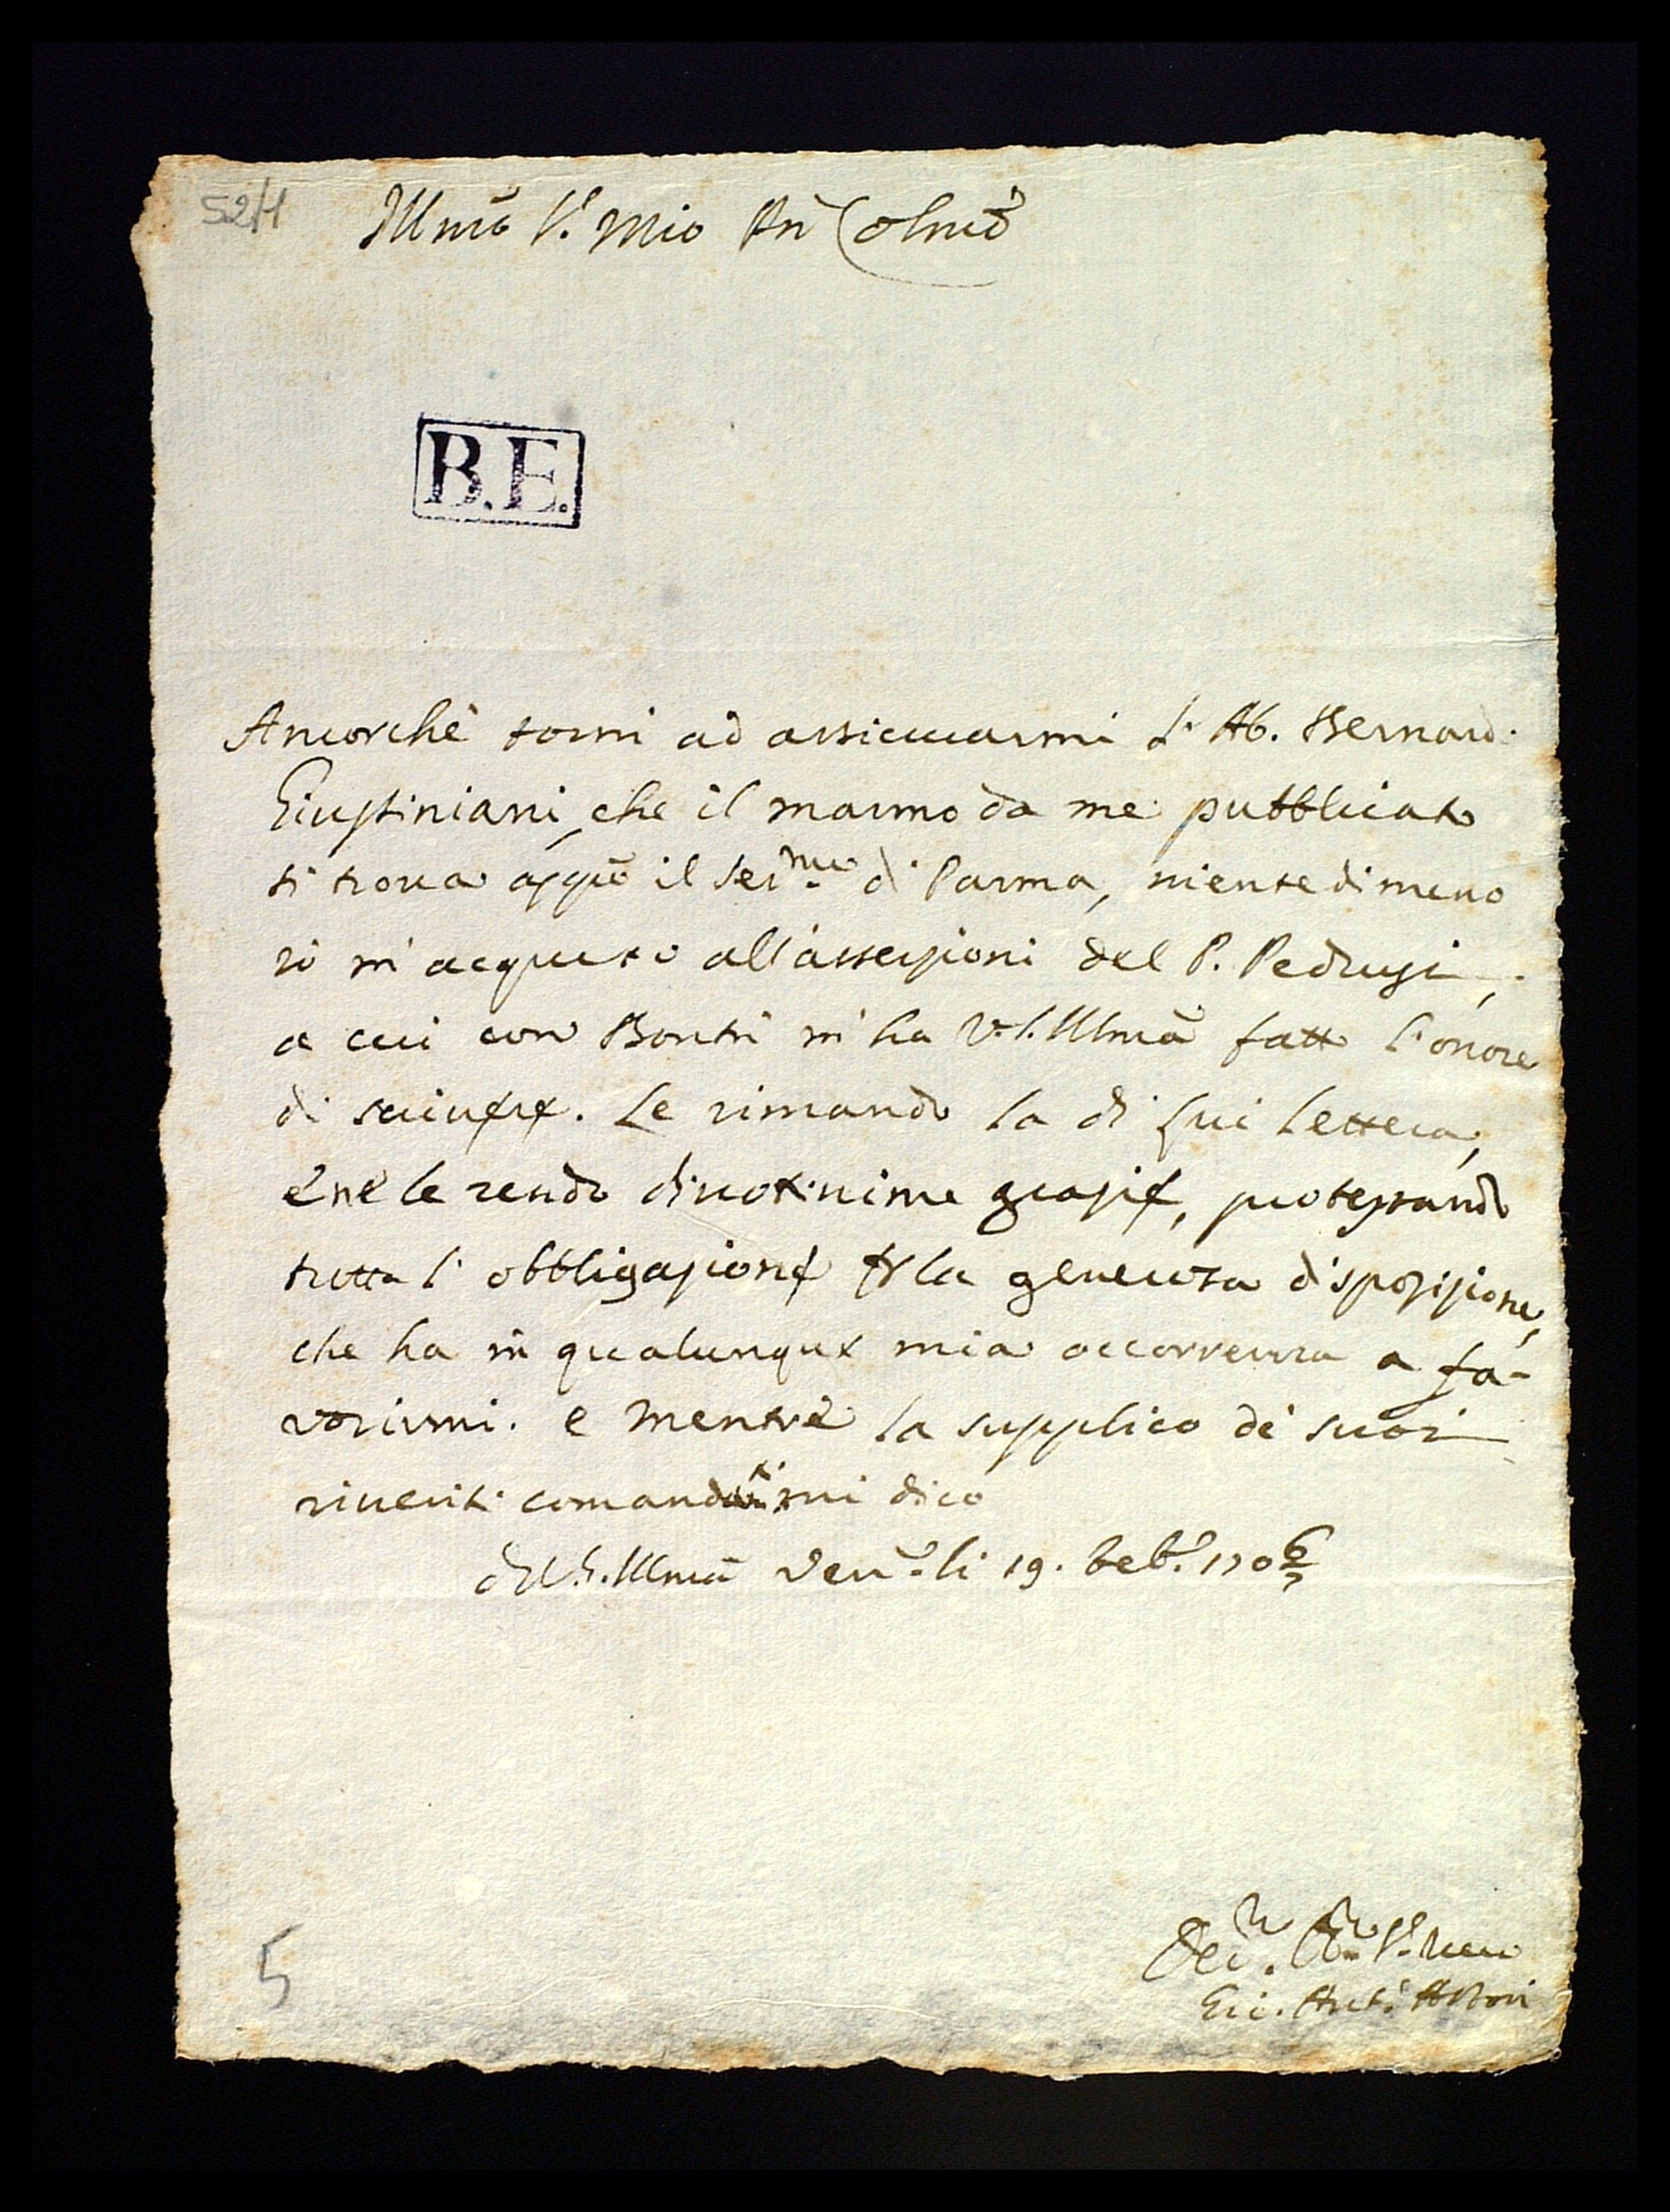 52/1
Illmo Sr. Mio Pn Colmo
B.E.
Ancorchè torni ad assicurarmi l'Ab. Bernard.
Giustiniani, che il marmo da me pubblicato
si trova appo il Sermo di Parma, nientedimeno
io m'acqueto all'asserzioni del P. Pedrusi,
a cui con Bontà m'ha V.S. Illma fatto l'onore
di scrivere. Le rimando la di lui lettera,
e ne le rendo divotissime grazie, protestando
tutta l'obbligazione p la generosa disposizione,
che ha in qualunque mia occorrenza a fa-
vorirmi. e mentre la supplico de' suoi
riveriti comandi mi dico
di V.S. Illma Vena. li 19. Feb. 1706/7
Gio. Anto. Astori
5